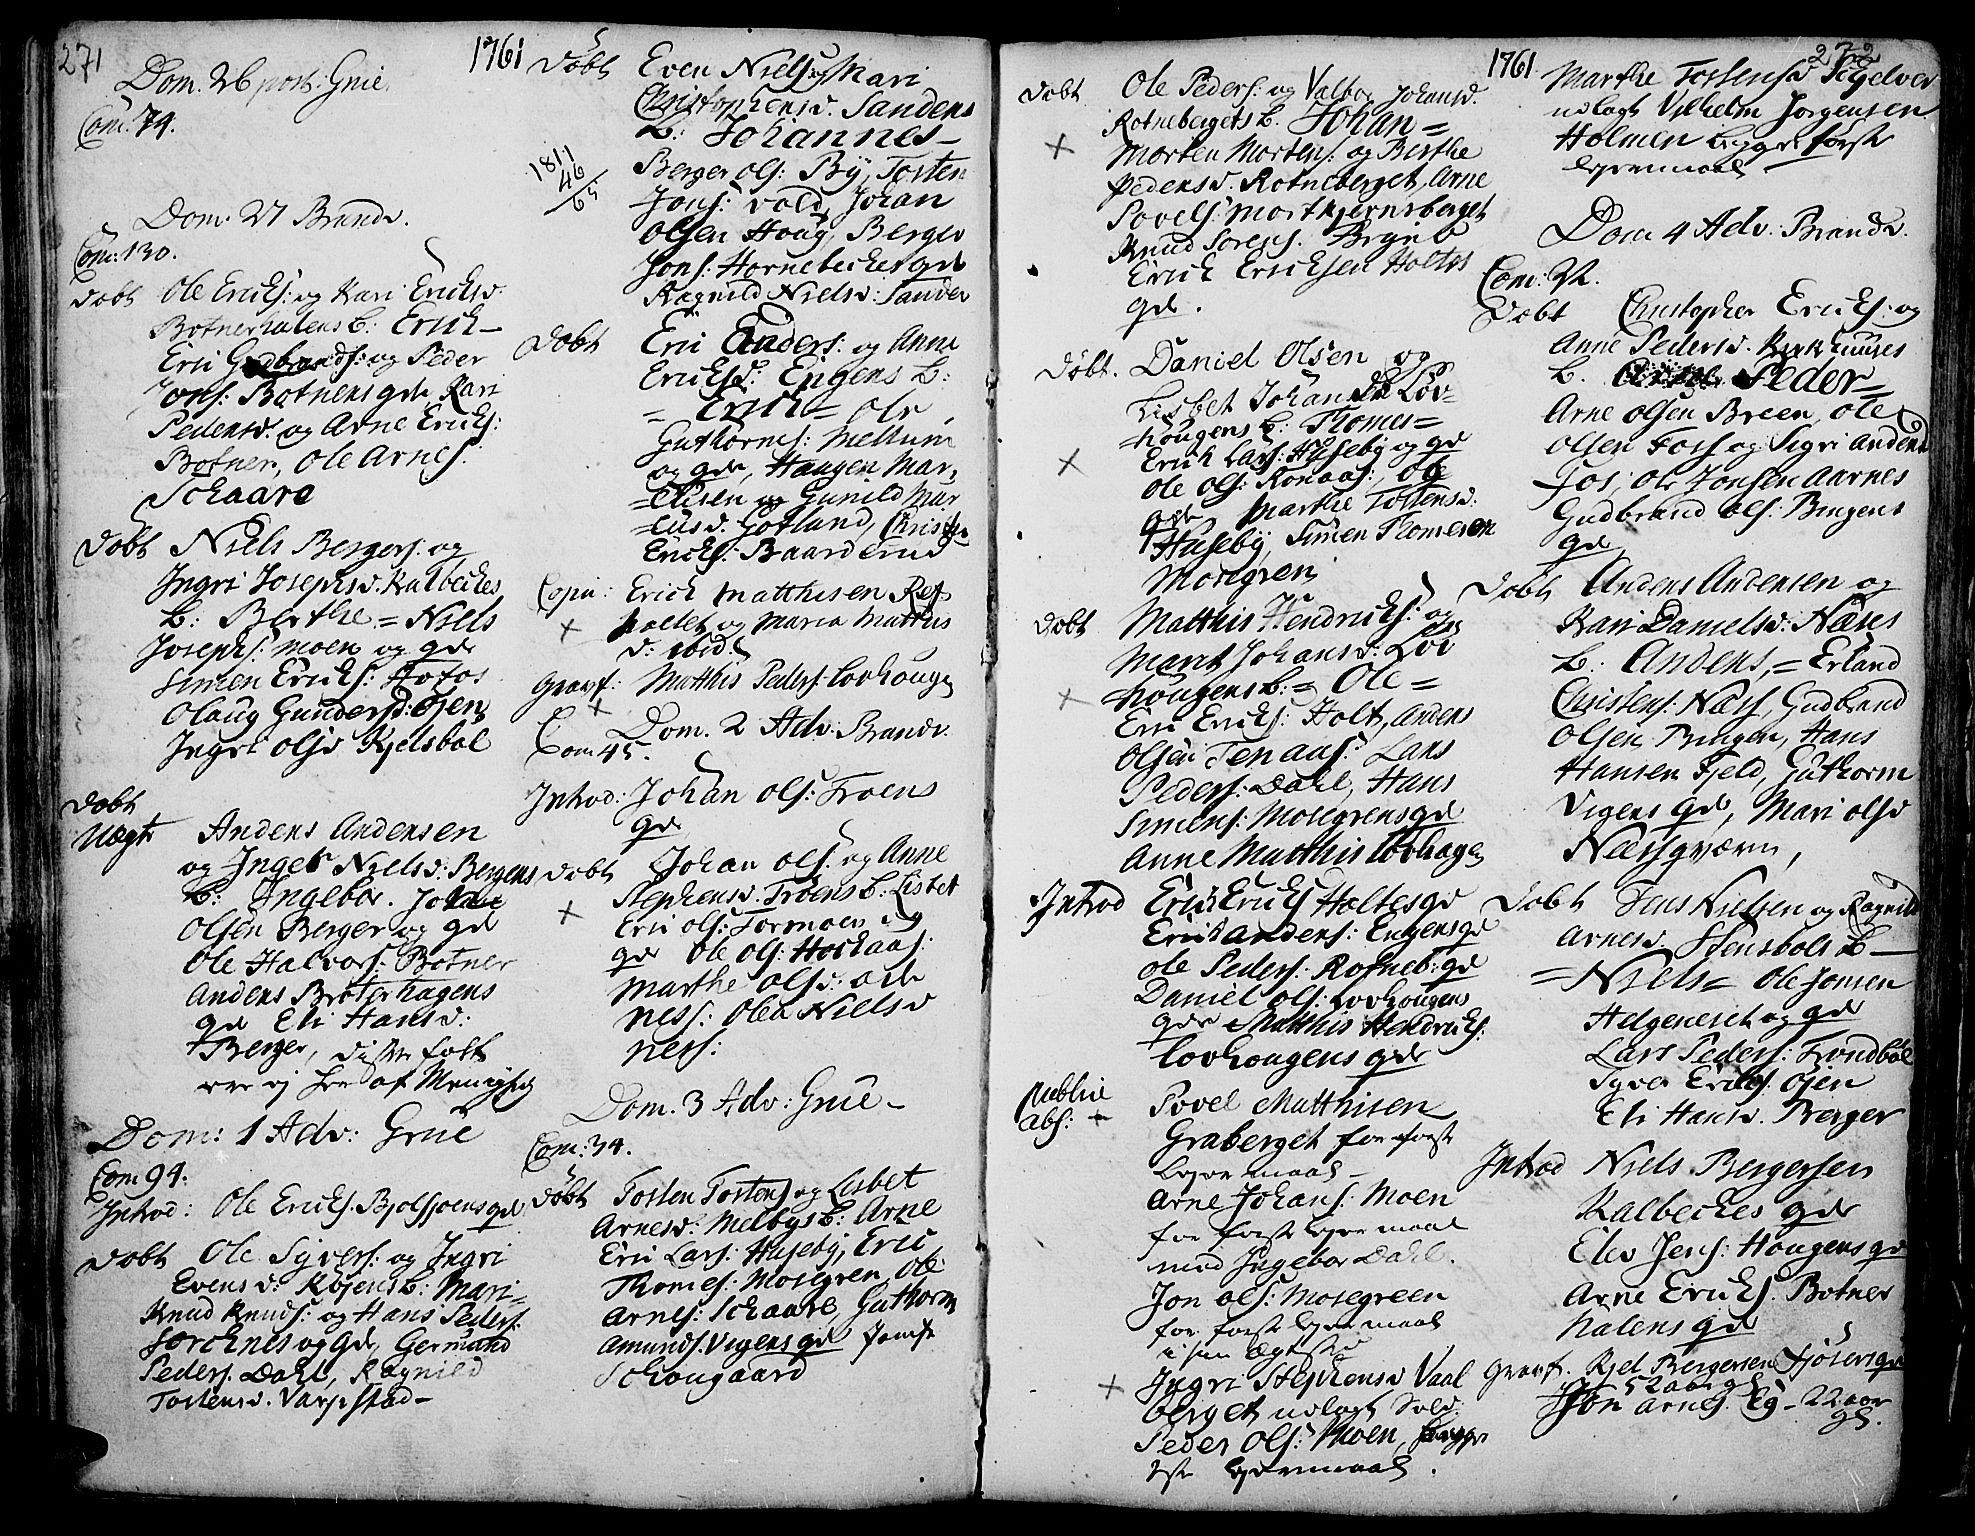 271
1761
Dom. 26 post: Grue.
Com. 74.
Dom. 27 Brandv.
Com: 130.
Døbt Ole Ericks: og Kari Ericksd.
Botnerhalens b: Erich-
Eric Gudbrands: og Peder
Jons: Botnens gde, Kari
Pedersd. og Arne Ericks:
Botner, Ole Arnes.
Schaare
Døbt Niels Bergers: og
Ingri Josephsd. Kalbeches
b: Berthe = Niels
Josephs: moen og gde
Simen Ericks: Hotos
Olaug Gundersd: Øjen
Ingri olsd Kjelsbøl
Døbt
Uægte Anders Andersen
og Inger Nielsd: Bergens
b: Ingebor. Johan
Olsen Berger og gde
Ole Halvors: Botner
Anders Broterhagens
gde Eli Hansd:
Berger, disse folk
ere ej her af Menighed
Dom: 1 Adv: Grue
Com 94.
Introd: Ole Ericks. Bjolsjoens gde
Døbt Ole Syvers: og Ingri
Evensd: Røjens b: Mari=
Knud Knuds: og Hans Peders.
Sorchnes og gde, Germund
Peders. Dahl, Ragnild
Tostensd. Varpestad-
Døbt Even Niels: og Mari
Christophersd. Sandens
b: Johannes-
1811
46
65
Berger ols: By, Tosten
Jons: vold, Johan
Olsen Houg, Berger
Jons: Hornebeches gde
Ragnild Nielsd: Sander
Døbt Eric Anders: og Anne
Ericksd: Engens b:
= Erich = ole
Guthormes: Mellum
og gde, Haugen Mar=
=cusen og Gunild Mar
=cusd. Gotland, Christen
Ericks: Baarderud
Copu: Erich Matthisen Ref
x haltet og Maria Matthis
d: ibid.
Gravf: Matthis Peders: Lovhougen
x Dom. 2 Adv: Brandv.
Com 45.
Introd: Johan ols: Froens
gde
Døbt Johan ols: og Anne
x Stephensd. Froens b: Lisbet
Eric ols: Formoen og
gde Ole ols: Hochaas:
Marthe olsd: ode
ness: Olea Nielsd
ness:
Dom. 3 Adv: Grue-
Com: 34.
Døbt Tosten Tostens: og Lisbet
Arnesd: Melbys b: Arne
Eric Lars: Huseby, Eric
Thomes: Mosegren, Ole
Arnes: Schaare, Guthorm
Amunds. Vigens gde
Schougaard
1761
272
Døbt Ole Peders: og Valbor Johansd.
Rotnebergets b. Johan=
x Morten Mortens: og Berthe
Pedersd. Rotneberget, Arne
Povels: Mortkjernsberget
Knud Sorens.
Erich Ericksen Holtes
gde.
Døbt. Daniel Olsen og
Lisbet Johansd: Lov=
hougens b: Thomes=
x Erick Lars: Huseby og gde
Ole ols: Ronaas:, Ole
gde Marthe Tostensd:
Huseby, Simen Thomesen
Mosegren
Døbt Matthis Hendricks: og
Marit Johansd: Lov
x hougens b: = Ole =
Eric Ericks: Holt, Anders
Olsen Tenaas: Lars
Peders: Dahl, Hans
Simens: Mosegrens gde
Anne Matthis Lovhagen
Introd Eric Ericks Holtes gde
Erick Anders: Engens gde
Ole Peders: Rotneb: gde
Daniel ols: Lovhougens
gde Matthis Hendricks:
Lovhougens gde
Publice
abs: + Povel Matthisen
Graberget for første
lejermaal-
Arne Johans: Moen
for første lejermaal
med Ingebor Dahl.
Jon ols: Mosegreen
for første lejermaal
x Ingri Stephensd Vaal
berget udlagt Sold:
Peder Ols: Moen, begge
1ste lejermaal.
Marthe Tostensd
udlagt Vilhelm Jorgensen
Holmen begge første
lejermaal-
Dom 4 Adv: Brandv.
Døbt Christopher Ericks: og
Anne Pedersd. Kirkhuuses
b. Peder=
Arne Olsen Breen, Ole
Olsen Foss og Sigri Andersd
Fos, Ole Jonsen Aarnes
Gudbrand ols: Bingens
gde
Døbt Anders Andersen og
Kari Danielsd: Næses
b: Anders, = Erland
Christens: Næss, Gudbrand
Olsen Bingen, Hans
Hansen Fjeld, Guthorm
Vigens gde, Mari olsd
Næssqværn,
Døbt Jens Nielsen og Ragnild
Arnesd. Stensbøls b-
=Niels= Ole Jonsen
Helgeneset og gde
Lars Peders: Trondbøl
Syver Ericks. Øjen
Eli Hansd. Berger
Introd Niels Bergersen
Kalbeches gde
Elev Jens: Hougens gde
Arne Ericks. Botner
halens gde
Gravf. Kjel Bergersen
52 aar gl.
Jon Arnes. Eg- 22 aar
gl.